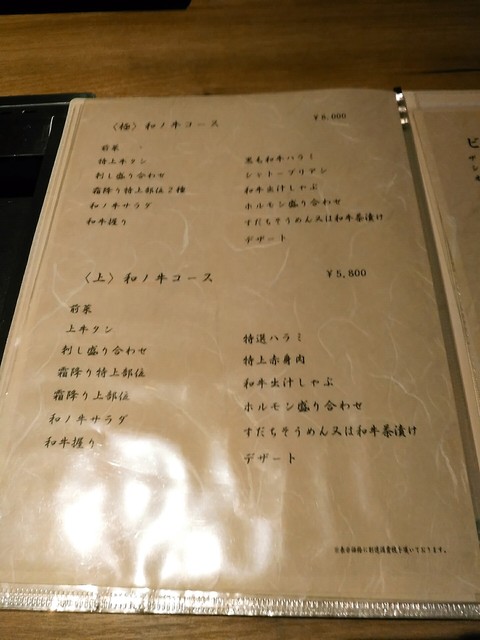 〈極〉和ノ牛コース ¥8,000
前菜
特上牛タン
刺し盛り合わせ
霜降り特上部位２種
和ノ牛サラダ
和牛握り
黒毛和牛ハラミ
シャトーブリアン
和牛出汁しゃぶ
ホルモン盛り合わせ
すだちそうめん又は和牛茶漬け
デザート
〈上〉和ノ牛コース ¥5,800
前菜
上牛タン
刺し盛り合わせ
霜降り特上部位
霜降り上部位
和ノ牛サラダ
和牛握り
特選ハラミ
特上赤身肉
和牛出汁しゃぶ
ホルモン盛り合わせ
すだちそうめん又は和牛茶漬け
デザート
※表示価格に別途消費税を頂いております。